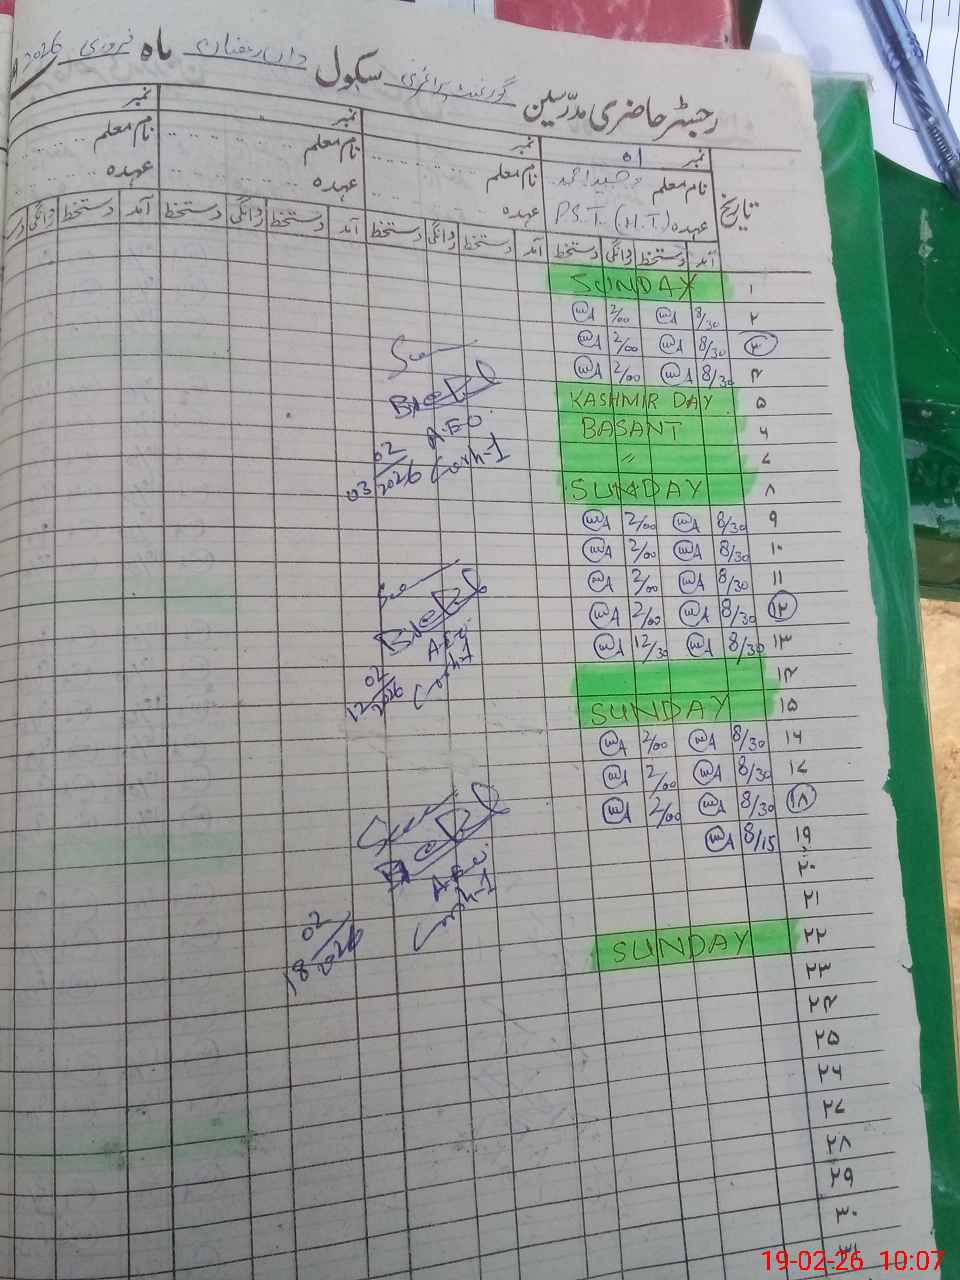 رجسٹر حاضری مدرسین گورنمنٹ پرائمری سکول ماہ فروری 2026
نمبر 01 نمبر نمبر نمبر
تاریخ نام معلم وحید احمد نام معلم نام معلم نام معلم
عہدہ P.S.T. (H.T.) عہدہ عہدہ عہدہ
آمد دستخط روانگی دستخط آمد دستخط روانگی دستخط آمد دستخط روانگی دستخط آمد دستخط روانگی
۱ SUNDAY
۲ 8/30 2/00
۳ 8/30 2/00
۴ 8/30 2/00
۵ KASHMIR DAY
۶ BASANT
۷ "
۸ SUNDAY
۹ 8/30 2/00
۱۰ 8/30 2/00
۱۱ 8/30 2/00
۱۲ 8/30 2/00
۱۳ 8/30 12/30
۱۴
۱۵ SUNDAY
۱۶ 8/30 2/00
۱۷ 8/30 2/00
۱۸ 8/30 2/00
۱۹ 8/15
۲۰
۲۱
۲۲ SUNDAY
۲۳
۲۴
۲۵
۲۶
۲۷
۲۸
۲۹
۳۰
۳۱
A.E.O.
03/02/2026
A.E.O.
12/02/2026
A.E.O.
18/02/2026
19-02-26 10:07